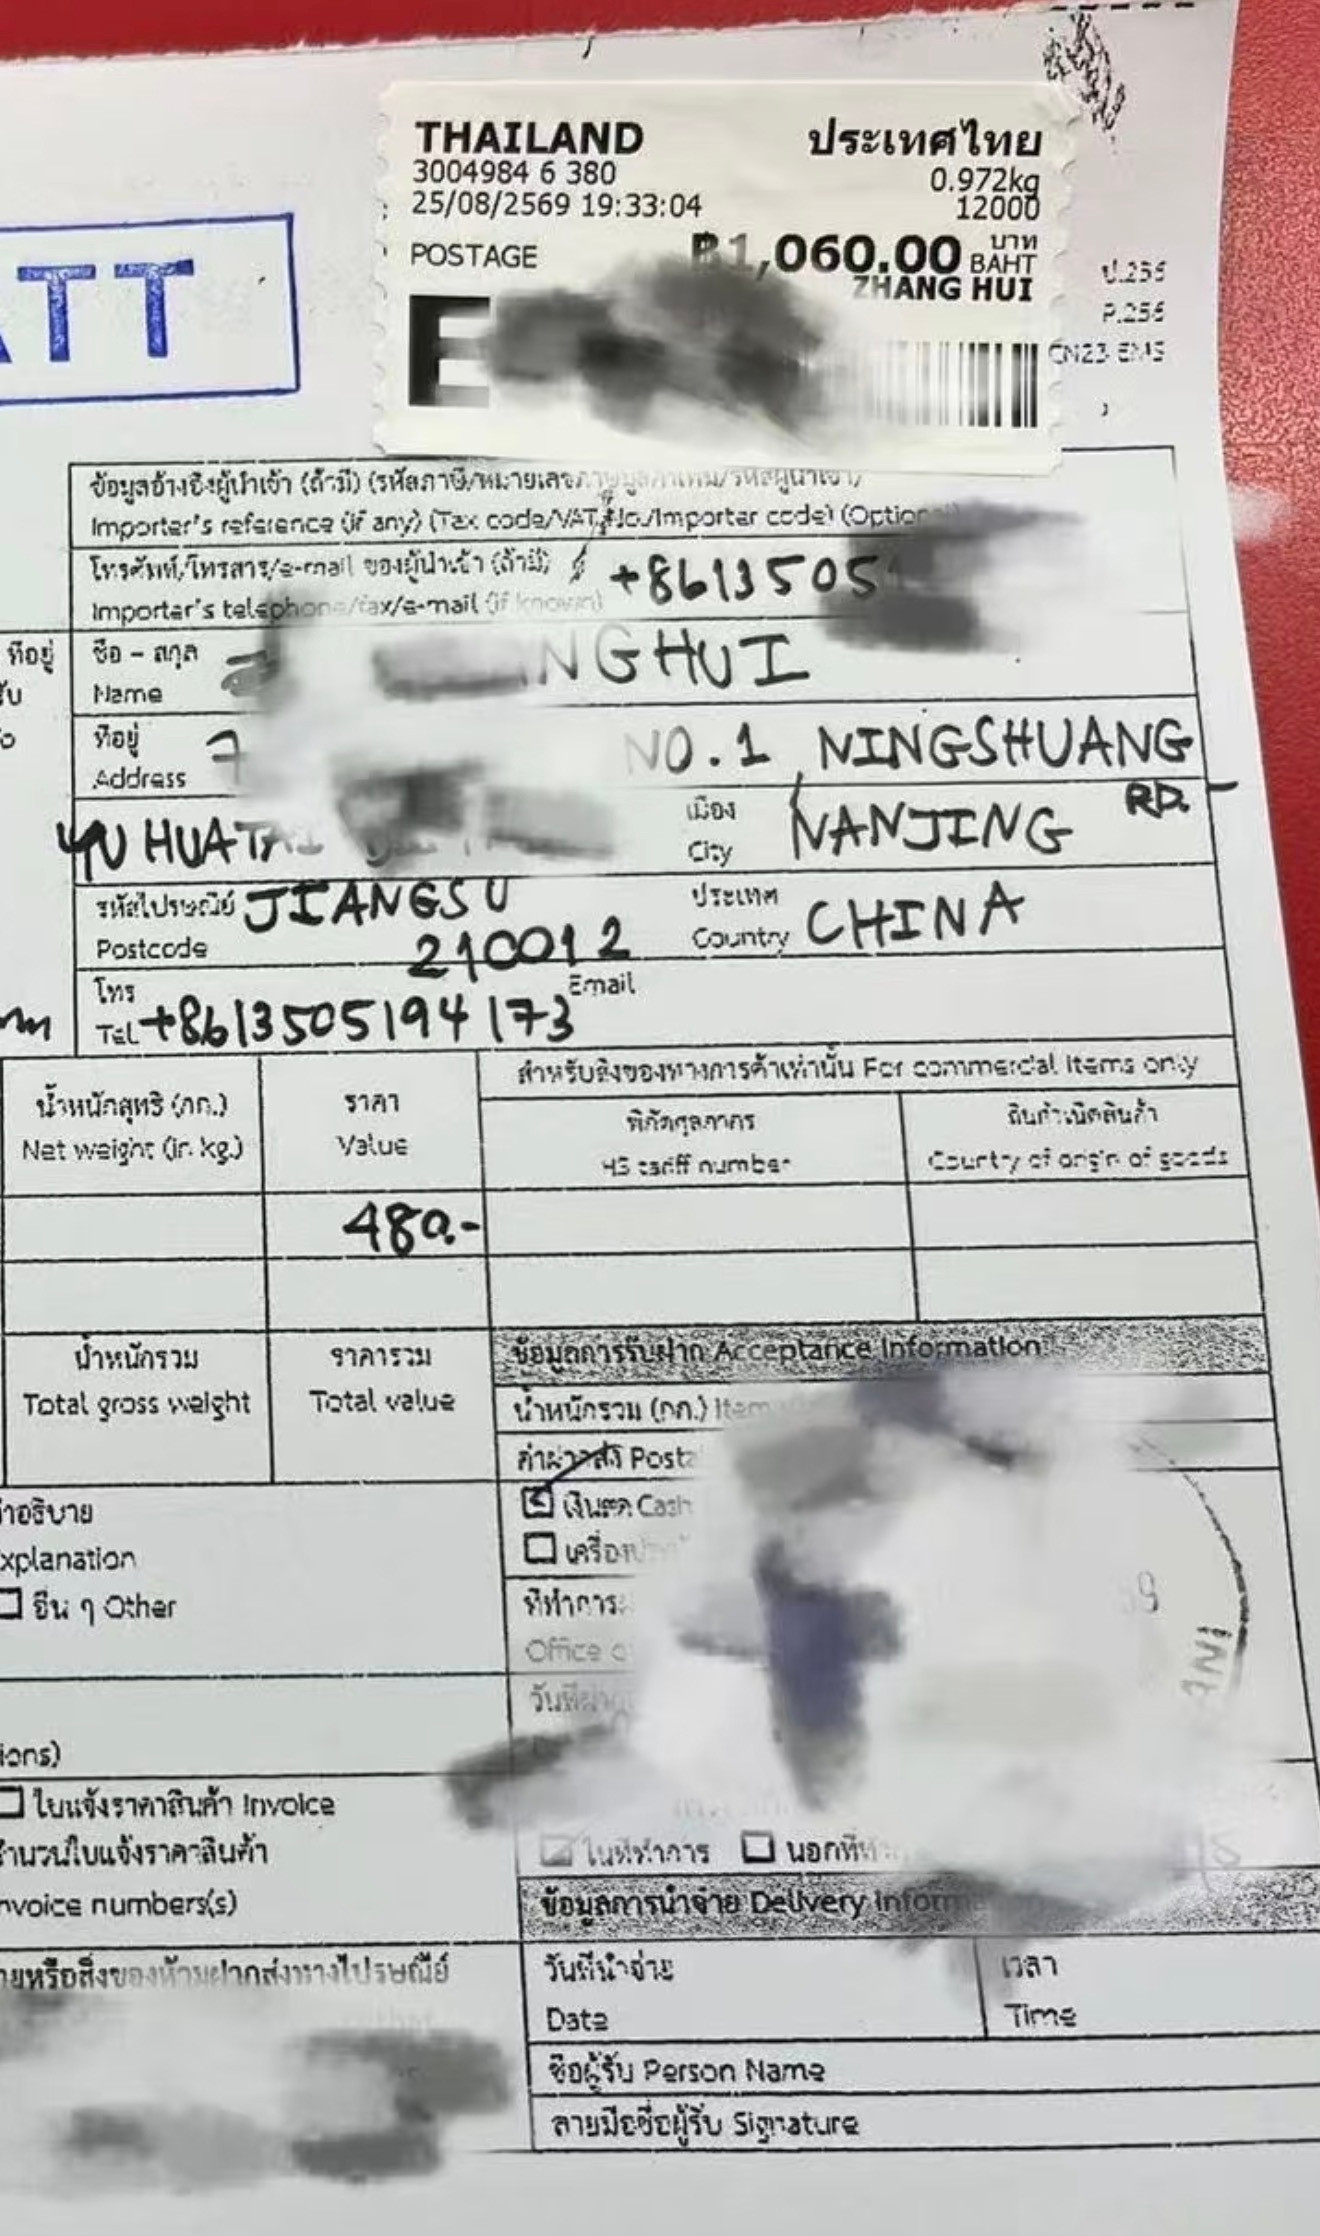 THAILAND ประเทศไทย
3004984 6 380 0.972kg
25/08/2569 19:33:04 12000
POSTAGE ฿1,060.00 บาท BAHT
ZHANG HUI
ATT
E
ป.256
P.256
CN23 EMS
ข้อมูลอ้างอิงผู้นำเข้า (ถ้ามี)
Importer's reference (if any) (Tax code/VAT No./Importer code)
โทรศัพท์/โทรสาร/e-mail ของผู้นำเข้า (ถ้ามี) +8613505
Importer's telephone/fax/e-mail (if known)
ที่อยู่ ชื่อ - สกุล
Name NGHUI
ที่อยู่ 7 NO.1, NINGSHUANG
Address RD.
YU HUATAI เมือง NANJING
City
รหัสไปรษณีย์ JIANGSU ประเทศ CHINA
Postcode 210012 Country
โทร Email
Tel +8613505194173
น้ำหนักสุทธิ (กก.) ราคา สำหรับสิ่งของทางการค้าเท่านั้น For commercial items only
Net weight (in kg.) Value พิกัดศุลกากร ถิ่นกำเนิดสินค้า
HS tariff number Country of origin of goods
480.-
น้ำหนักรวม ราคารวม ข้อมูลการรับฝาก Acceptance Information
Total gross weight Total value น้ำหนักรวม (กก.) Item
ค่าฝากส่ง
คำอธิบาย เงินสด Cash
xplanation
อื่น ๆ Other
Office
ions)
ใบแจ้งราคาสินค้า Invoice
จำนวนใบแจ้งราคาสินค้า ในที่ทำการ
nvoice numbers(s) ข้อมูลการนำจ่าย Delivery
วันที่นำจ่าย เวลา
Date Time
ชื่อผู้รับ Person Name
ลายมือชื่อผู้รับ Signature